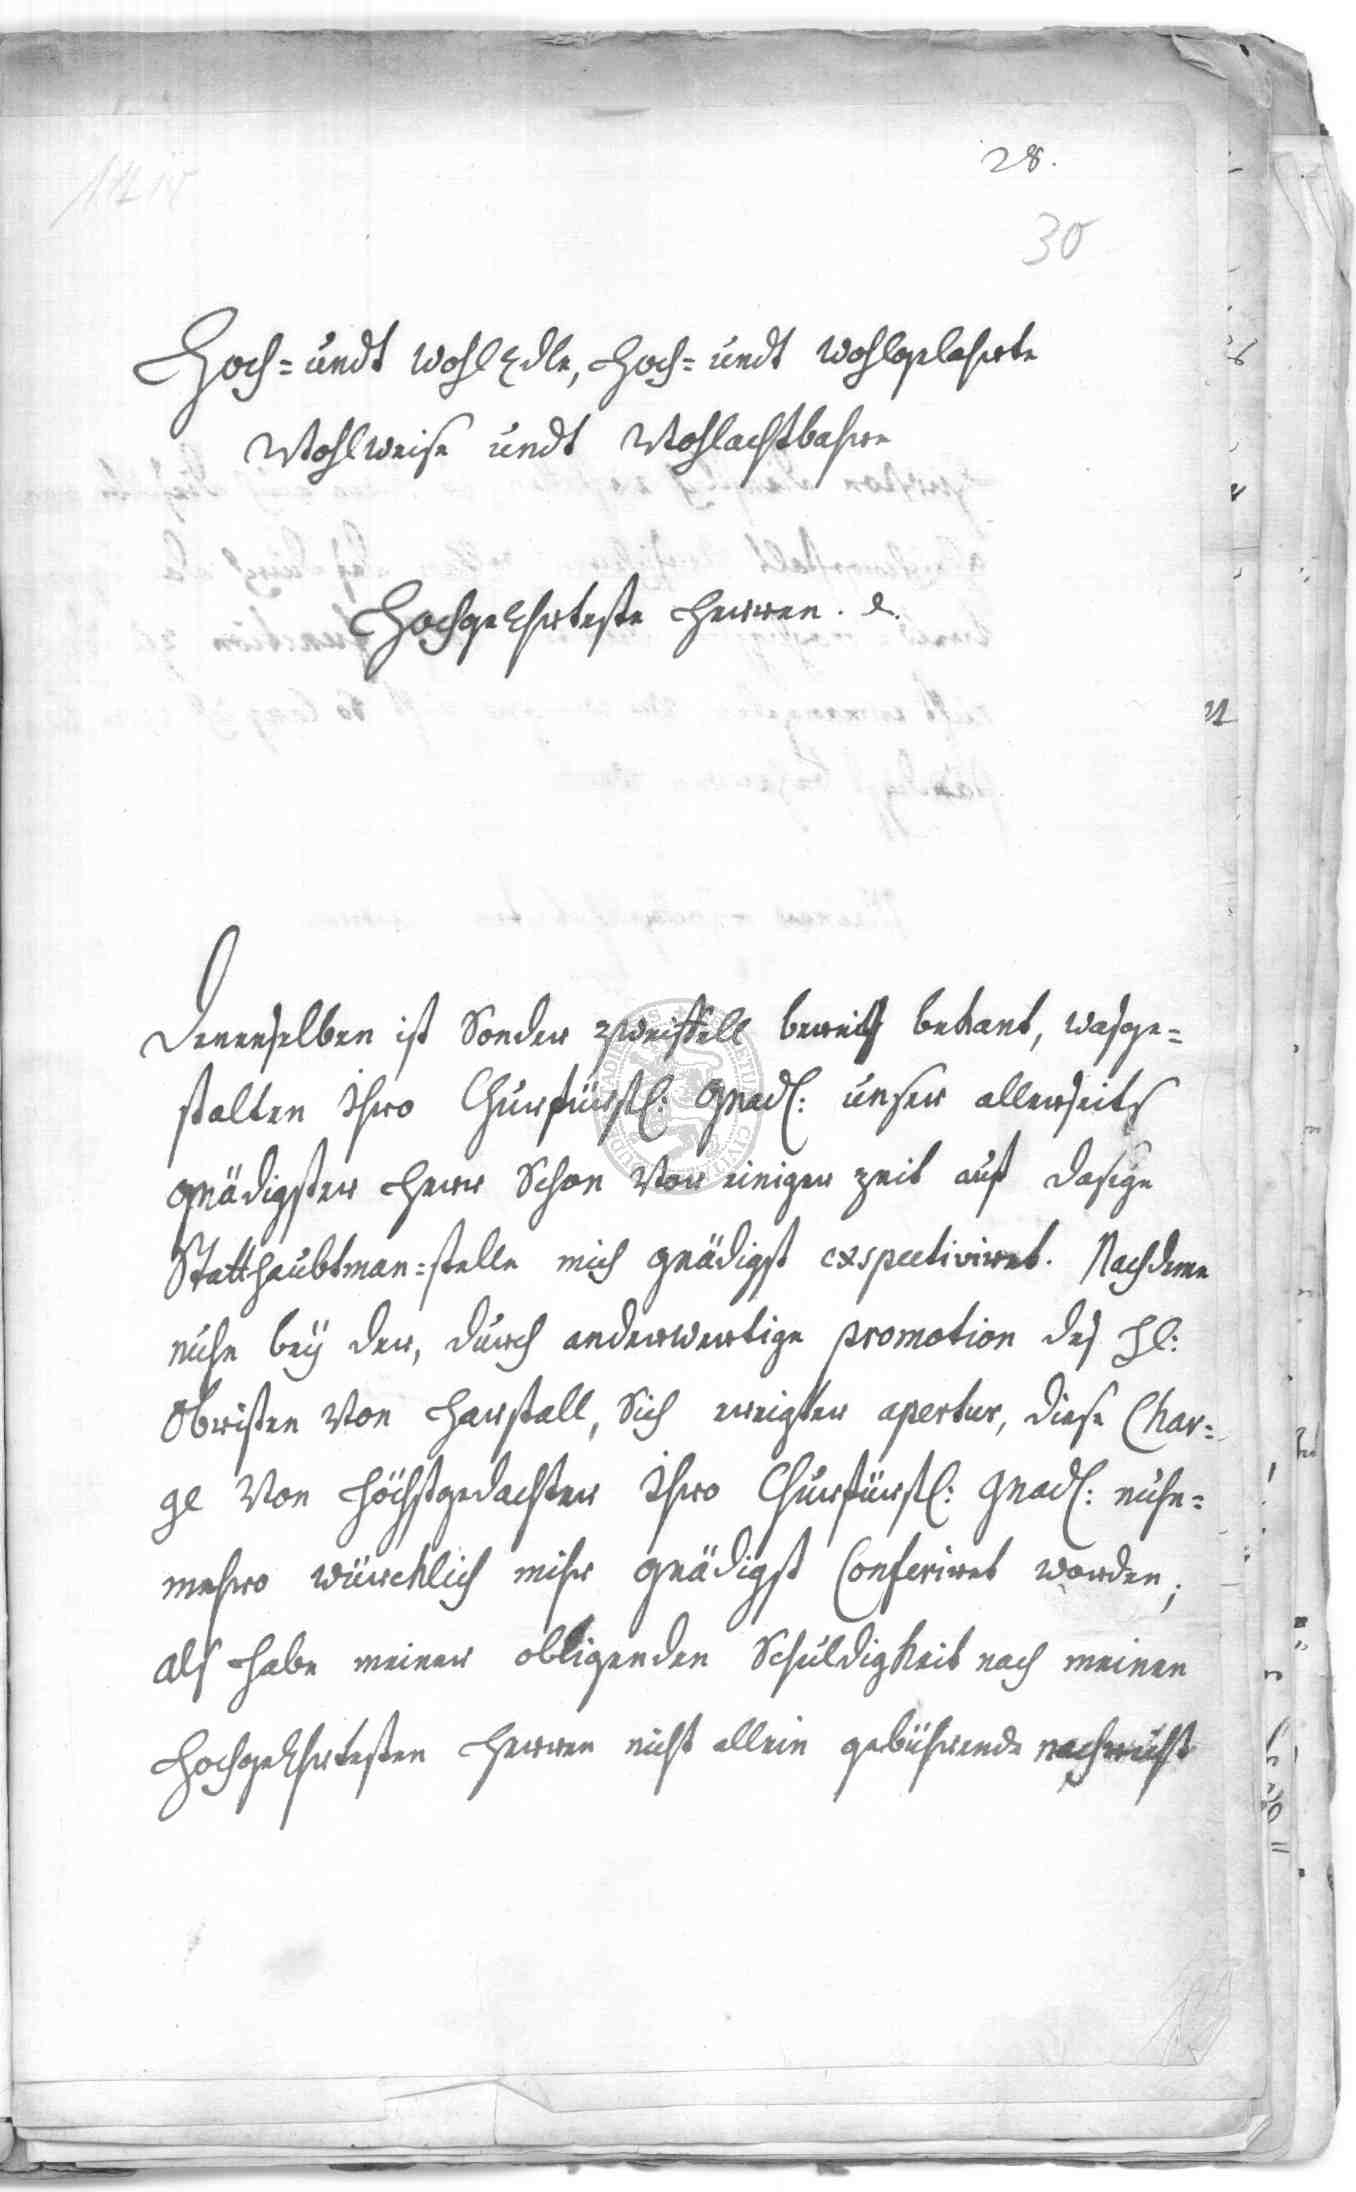 28.
30
Hoch= undt WohlEdle, Hoch= undt Wohlgelahrte
Wohlweise undt Wohlachtbahre
HochgeEhrteste Herren. &.
Denenselben ist Sonder zweiffell bereits bekant, wasge=
stalten Ihro Churfürstl: Gnad: unser allerseits
gnädigster Herr Schon Vor einiger zeit auf dasige
Statthaubtman=stelle mich gnädigst exspectiviret. Nachdeme
nuhn bey der, durch anderwertige promotion des Hl:
Obristen Von Harstall, Sich ereigter apertur, diese Char=
ge Von Höchstgedachter Ihro Churfürstl: Gnad: nuhn=
mehro würcklich mihr gnädigst Conferiret worden;
als habe meiner obligenden Schuldigkeit nach meinen
HochgeEhrtesten Herren nicht allein gebührende nachricht